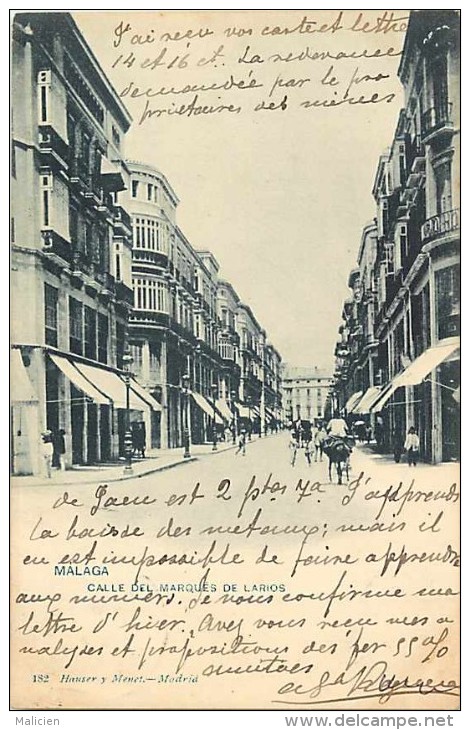 J'ai reçu vos carte et lettre
14 et 16 ct. La redevance
demandée par le pro
priétaires des mines
de Jaen est 2 ptas 7a. J'apprends
la baisse des metaux; mais il
en est impossible de faire apprendre
MALAGA
CALLE DEL MARQUÉS DE LARIOS
aux miniers. Je vous confirme ma
lettre d'hier. Avez vous reçu mes a
nalyses et propositions des fer 55 %
182 Hauser y Menet.—Madrid
Malicien
http://www.delcampe.net